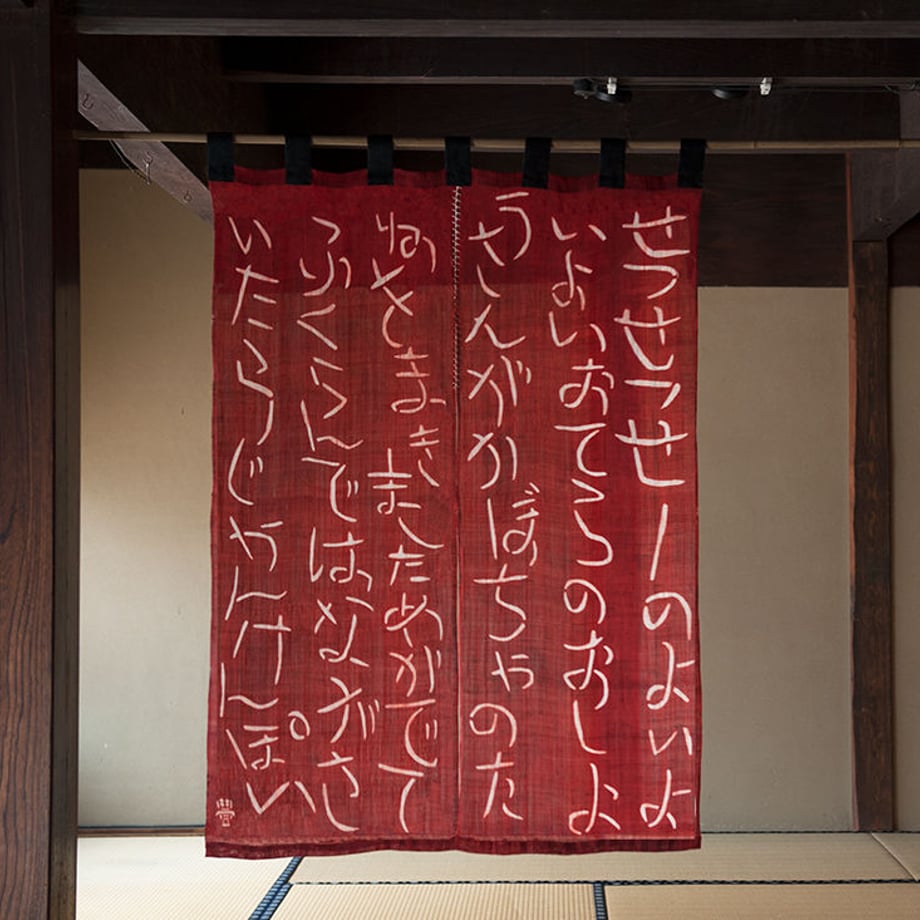 せっせっせーのよいよ
いよいおてらのおしよ
うさんがかぼちゃのた
ねをまきましためがでて
っふくらんではながさ
いたらじゃんけんぽい